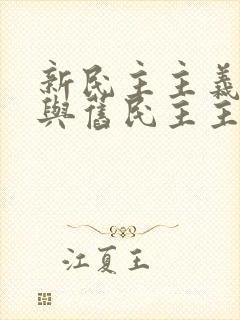 新民主主義
與舊民主主
江夏王